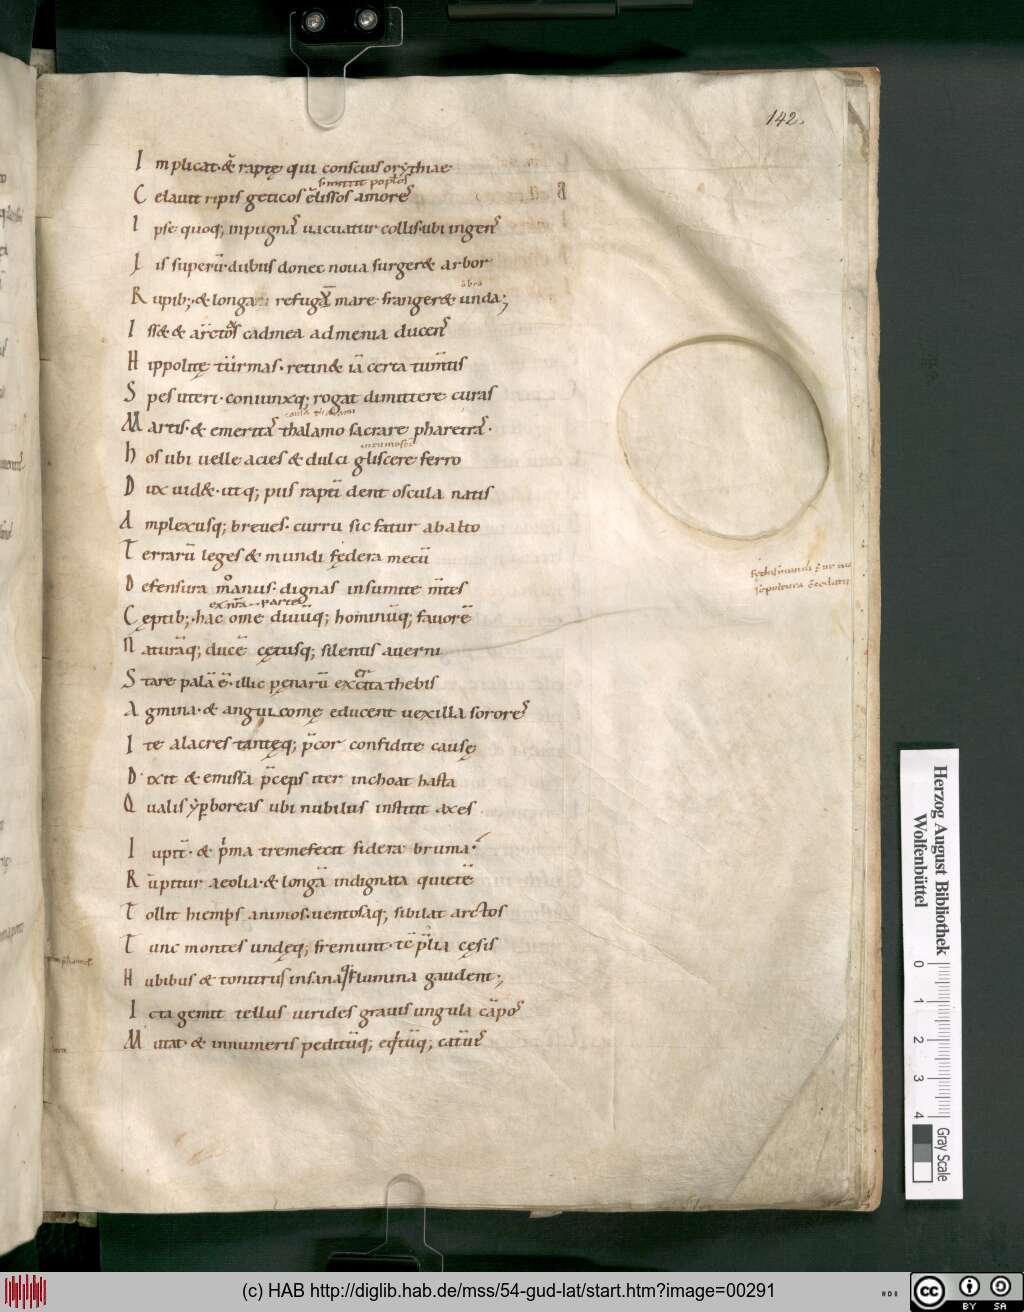 142.
Implicat· & raptę qui conscius orythiae
Celauit ripis geticos ēlissos amore᷒
Ipse quoq; inpugnā uacuatur collis· ubi ingen᷒
Lis superū· dubiis donec noua surger& arbor
Rupib;· & longa refuga mare franger& unda;
Iss& & arctos cadmea admenia ducen᷒
Hippolitę turmas· retin& iā certa tumtis
Spes uteri· coniunxq; rogat dimittere curas
Martis· & emeritā thalamo sacrare pharetrā·
Hos ubi uelle acies & dulci gliscere ferro
Dux uid&· utq; piis raptī dent oscula natis
Amplexusq; breues· curru sic fatur abalto
Terrarū leges & mundi fędera mecū
Defensura manus· dignas insumite m̄tes
Cęptib;· hac om̄e diuūq; hominūq; fauorē
Naturāq; ducē cętusq; silentis auerni
Stare palā ē· illic pęnarū excita thebis
Agmina· & angui comę educent uexilla soror᷒
Ite alacres tantęq; p̄cor confidite causę
Dixit & emissa p̄ceps iter inchoat hasta
Qualis yꝑboreas ubi nubilus institit axes
Iupit̄· & p̄ma tremefecit sidera bruma·
Rūpitur aeolia· & longā indignata quietē
Tollit hiemps animos· uentosaq; sibilat arctos
Tunc montes undęq; fremunt· tē p̄lia cęsis
Nubibus & tonitrus insanaq; flumina gaudent;
Icta gemit tellus uirides grauis ungula cāpo᷒
Mutat· & innumeris peditūq; eq̇tūq; catūe᷒
Herzog August Bibliothek
Wolfenbüttel
0 1 2 3 4
Gray Scale
(c) HAB http://diglib.hab.de/mss/54-gud-lat/start.htm?image=00291
cc BY SA